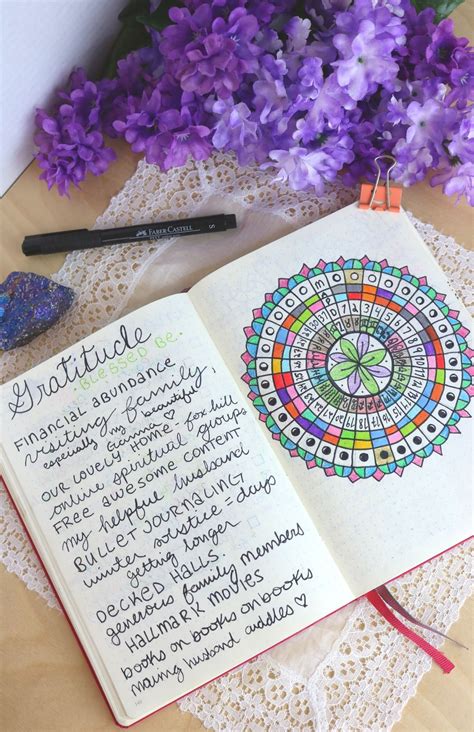 FABER CASTELL S
Gratitude
Blessed Be.
FINANCIAL ABUNDANCE
visiting family,
especially my beautiful
Gramma ♡
OUR LOVELY HOME - fox hill
online spiritual groups
FREE AWESOME CONTENT
my helpful husband
BULLET JOURNALING
winter solstice = days
getting longer
DECKED HALLS.
generous family members
HALLMARK MOVIES
books on books on books
husband cuddles ♡